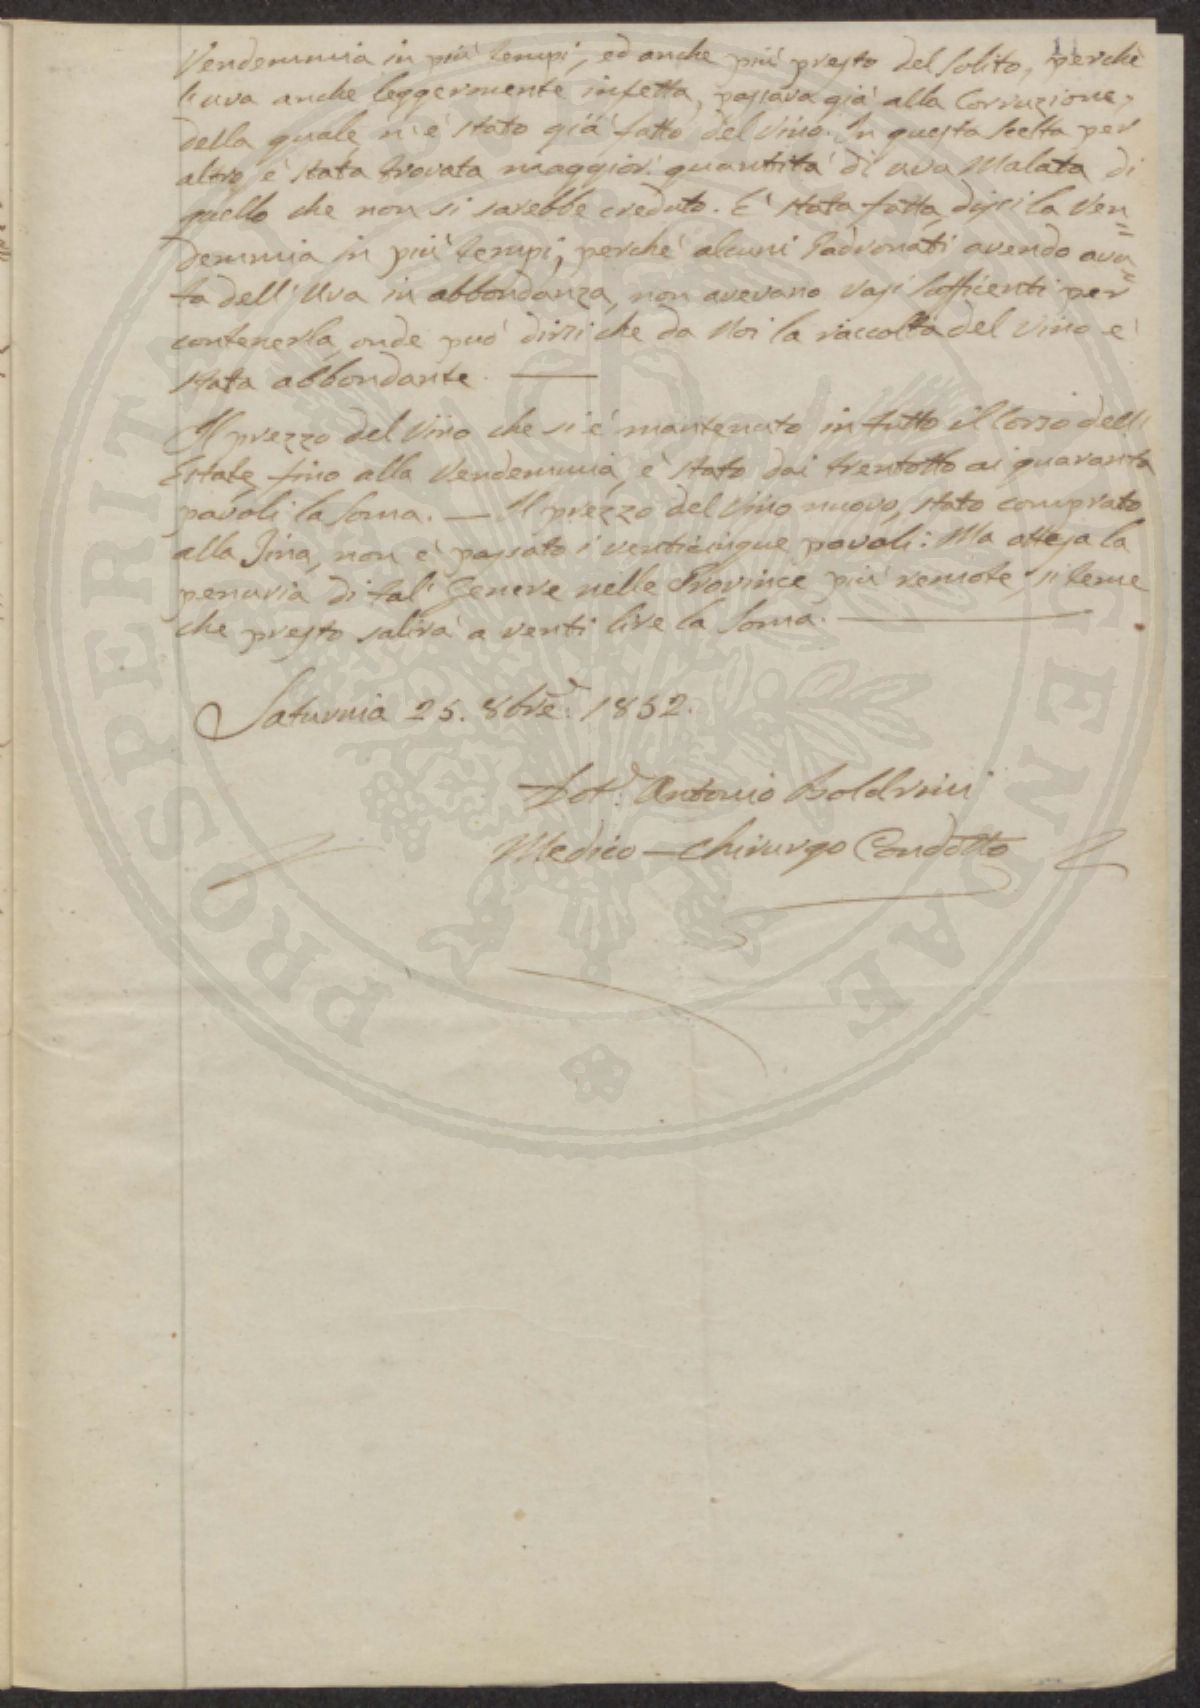 11
Vendemmia in più tempi, ed anche più presto del solito, perchè
l'uva anche leggermente infetta, passava già alla Corruzione,
della quale n'è stato già fatto del vino. In questa scelta per
altro è stata trovata maggior quantità di uva Malata di
quello che non si sarebbe creduto. E' stata fatta, dissi la Ven=
demmia in più tempi, perchè alcuni Padronati avendo avu=
ta dell'Uva in abbondanza, non avevano vasi sofficenti per
contenerla, onde può dirsi che da Noi la raccolta del vino è
stata abbondante. —
Il prezzo del vino che si è mantenuto in tutto il Corso dell'
Estate, fino alla Vendemmia, è stato dai trentotto ai quaranta
paoli la Soma. — Il prezzo del vino nuovo, stato comprato
alla Tina, non è passato i venticinque pavoli: Ma attesa la
penuria di tal' Genere nelle Province più remote, si teme
che presto salirà a venti lire la Soma. —
Saturnia 25. 8bre. 1852.
Dot. Antonio Boldrini
Medico - Chirurgo Condotto
PROSPERITATI PUBLICAE AUGENDAE